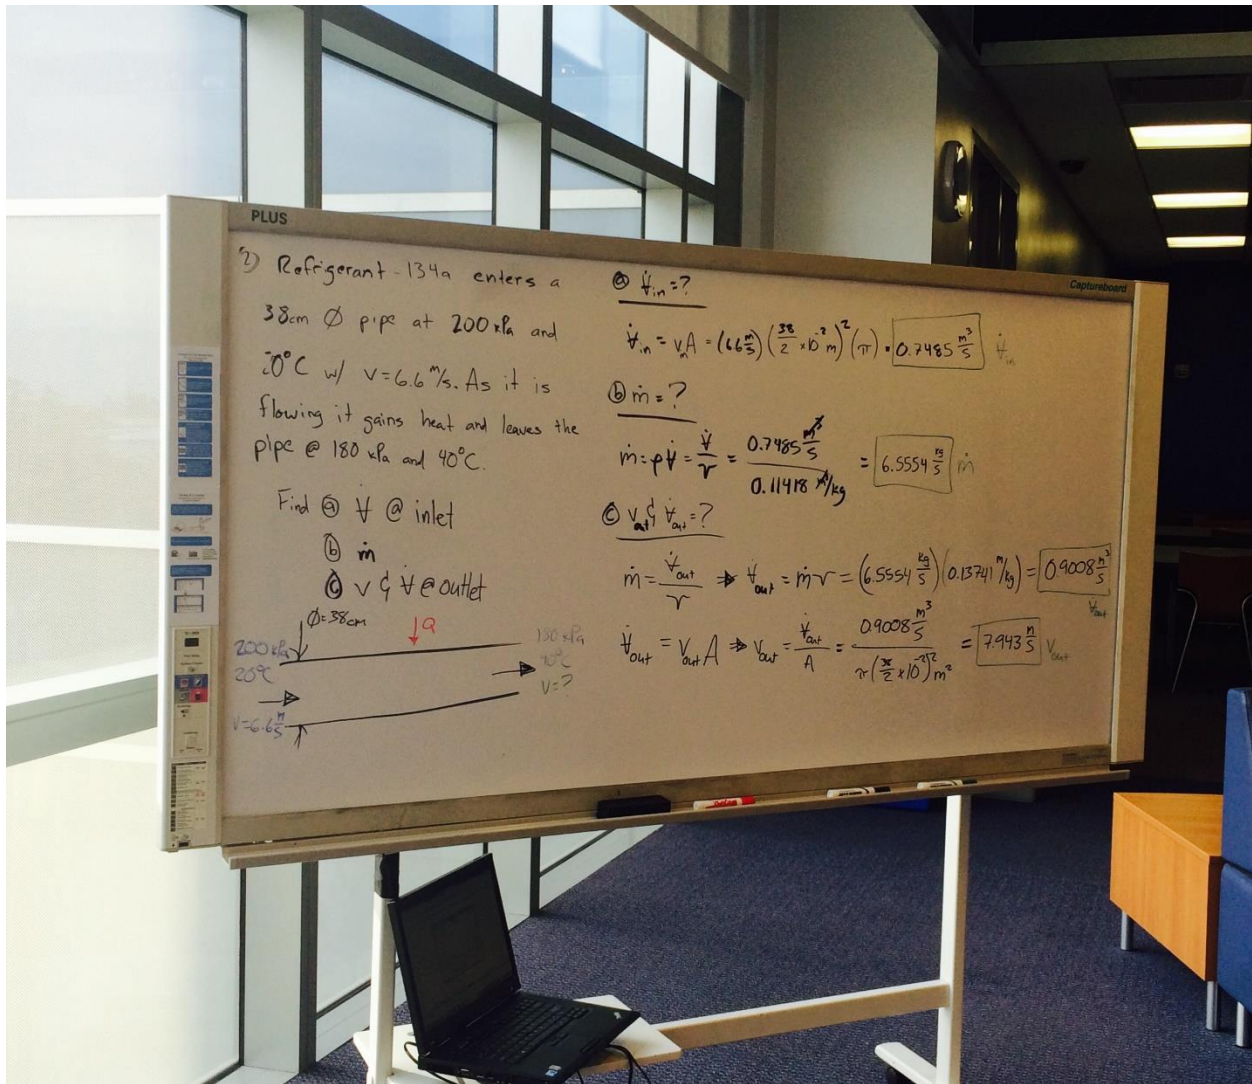 PLUS
Captureboard
2) Refrigerant-134a enters a
38cm Ø pipe at 200 kPa and
20°C w/ v=6.6 m/s. As it is
flowing it gains heat and leaves the
pipe @ 180 kPa and 40°C.
Find ⓐ V̇ @ inlet
ⓑ ṁ
ⓒ v & V̇ @ outlet
Ø=38cm
Q
200 kPa
20°C
V=6.6 m/s
180 kPa
40°C
V=?
ⓐ V̇in=?
V̇in = vinA = (6.6 m/s) (38/2 ×10⁻² m)² (π) = 0.7485 m³/s V̇in
ⓑ ṁ=?
ṁ = ρV̇ = V̇/v = 0.7485 m³/s / 0.11418 m³/kg = 6.5554 kg/s ṁ
ⓒ vout & V̇out=?
ṁ = V̇out/v ⇒ V̇out = ṁv = (6.5554 kg/s)(0.13741 m/kg) = 0.9008 m³/s
V̇out
V̇out = VoutA ⇒ Vout = V̇out/A = 0.9008 m³/s / π(38/2 ×10⁻²)² m² = 7.943 m/s Vout